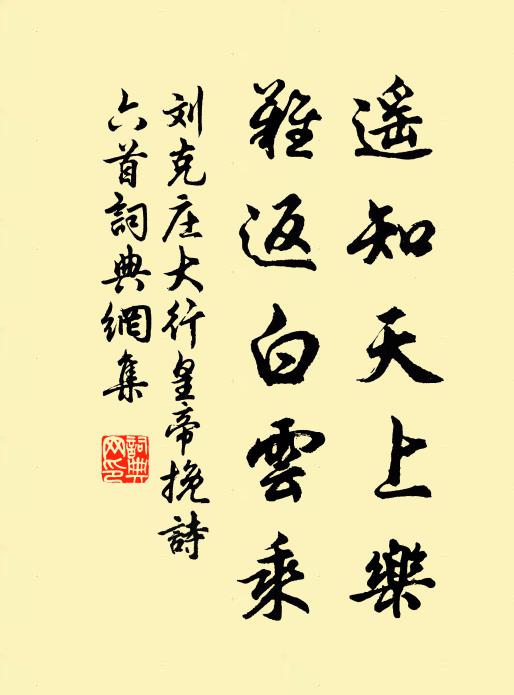 遥知天上樂
難返白雲乘
刘克庄大行皇帝挽詩
六首詞典網集
詞典網印